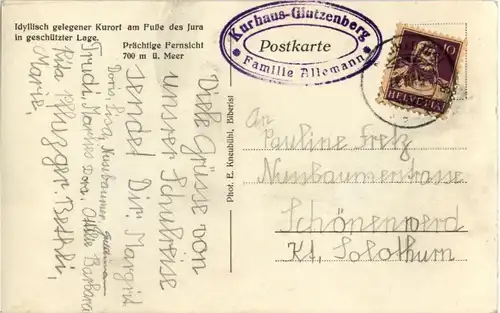 Idyllisch gelegener Kurort am Fuße des Jura
in geschützter Lage.
Prächtige Fernsicht
700 m ü. Meer
Kurhaus-Glutzenberg
Postkarte
* Familie Allemann *
10
HELVETIA
Phot. E. Kneubühl, Biberist
An
Pauline Fretz
Nussbaumerstrasse
Schönenwerd
Kt. Solothurn
Viele Grüsse von
unsrer Schulreise
sendet Dir. Margrit
Doris, Lisa, Nussbaumer,
Trudi, Marlies Dora, Ottilie Barbara
Rita Pfluger. Bethli,
Marie,